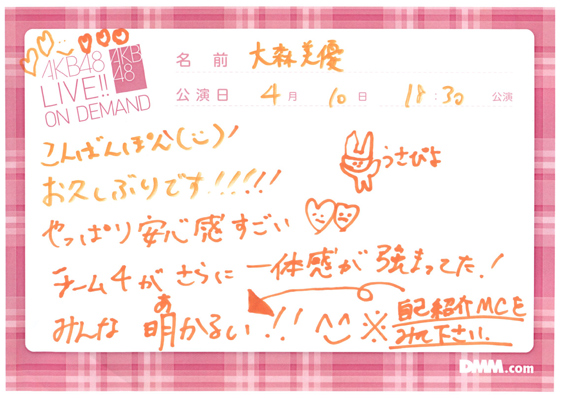 AKB48
LIVE!!
ON DEMAND
AKB
48
名前 大森美優
公演日 4月 10日 18:30 公演
こんばんぽん(¨)!
うさぴよ
お久しぶりです!!!!!
やっぱり安心感すごい
チーム4がさらに一体感が強まってた!
みんな明かるい!! ^^ ※自己紹介MCを
あ
みて下さい.
DMM.com